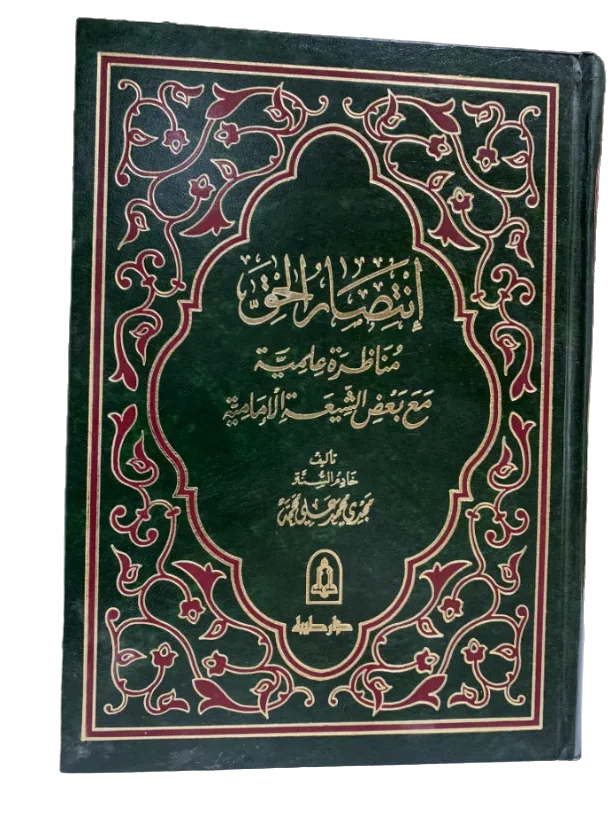 إنتصار الحق
مناظرة علمية
مع بعض الشيعة الإمامية
تأليف
خادم السنة
مجدي محمد علي محمد
دار طيبة